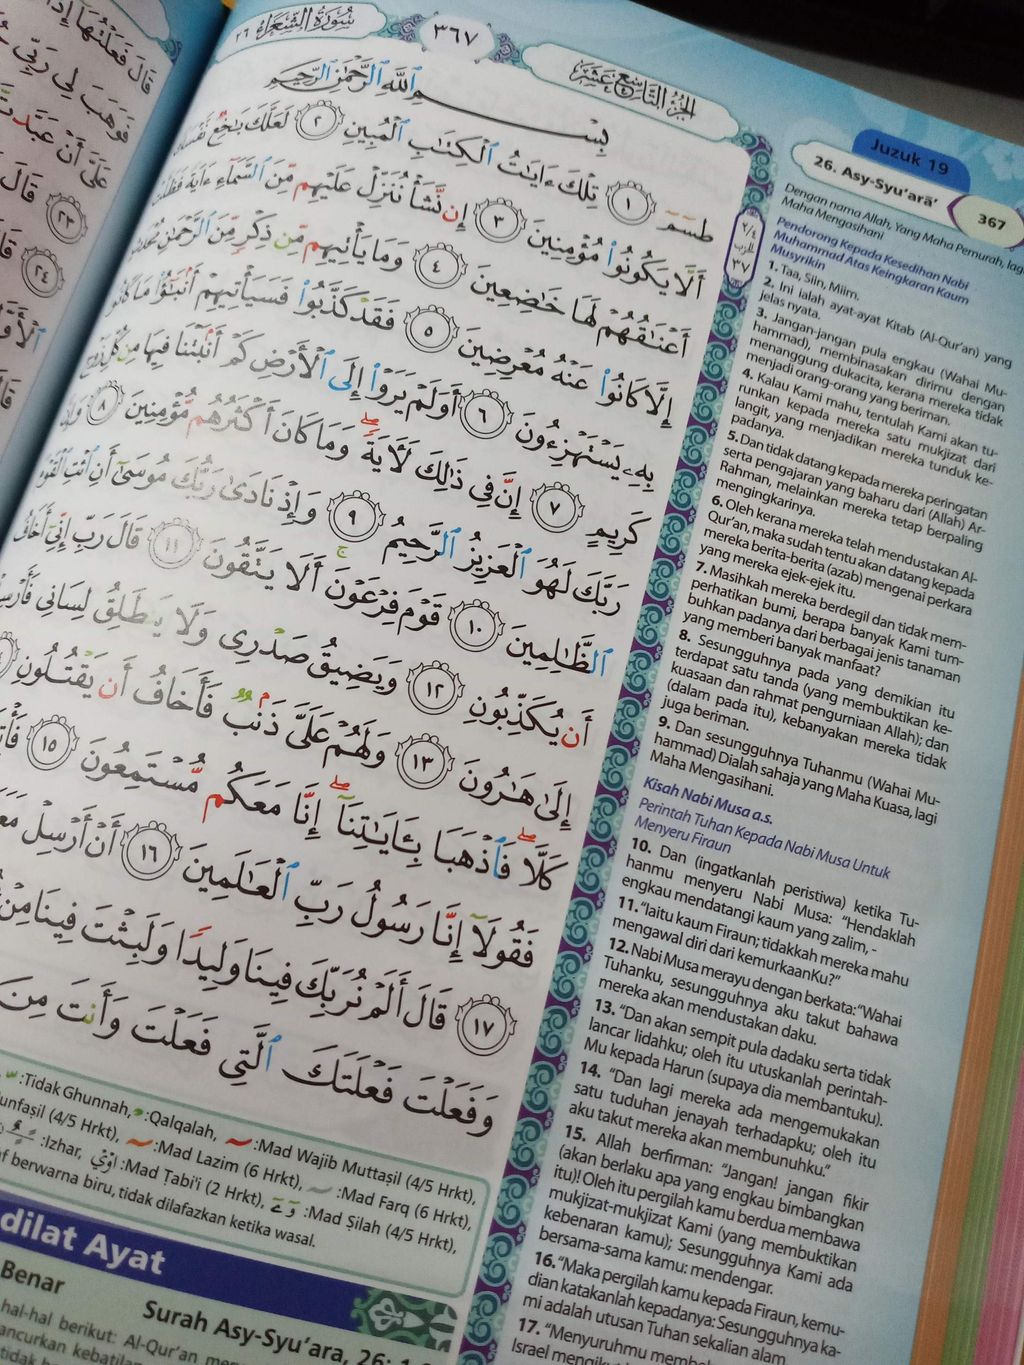 سُورَةُ الشُّعَرَاءِ ٢٦
٣٦٧
الجُزْءُ التَّاسِعَ عَشَرَ
بِسْمِ ٱللَّهِ ٱلرَّحْمَٰنِ ٱلرَّحِيمِ
طسٓمٓ ١ تِلْكَ ءَايَٰتُ ٱلْكِتَٰبِ ٱلْمُبِينِ ٢ لَعَلَّكَ بَٰخِعٌ نَّفْسَكَ
أَلَّا يَكُونُوا۟ مُؤْمِنِينَ ٣ إِن نَّشَأْ نُنَزِّلْ عَلَيْهِم مِّنَ ٱلسَّمَآءِ ءَايَةً فَظَلَّتْ
أَعْنَٰقُهُمْ لَهَا خَٰضِعِينَ ٤ وَمَا يَأْتِيهِم مِّن ذِكْرٍ مِّنَ ٱلرَّحْمَٰنِ مُحْدَثٍ
إِلَّا كَانُوا۟ عَنْهُ مُعْرِضِينَ ٥ فَقَدْ كَذَّبُوا۟ فَسَيَأْتِيهِمْ أَنۢبَٰٓؤُا۟ مَا كَانُوا۟
بِهِۦ يَسْتَهْزِءُونَ ٦ أَوَلَمْ يَرَوْا۟ إِلَى ٱلْأَرْضِ كَمْ أَنۢبَتْنَا فِيهَا مِن كُلِّ زَوْجٍ
كَرِيمٍ ٧ إِنَّ فِى ذَٰلِكَ لَءَايَةً ۖ وَمَا كَانَ أَكْثَرُهُم مُّؤْمِنِينَ ٨ وَإِنَّ
رَبَّكَ لَهُوَ ٱلْعَزِيزُ ٱلرَّحِيمُ ٩ وَإِذْ نَادَىٰ رَبُّكَ مُوسَىٰٓ أَنِ ٱئْتِ ٱلْقَوْمَ
ٱلظَّٰلِمِينَ ١٠ قَوْمَ فِرْعَوْنَ ۚ أَلَا يَتَّقُونَ ١١ قَالَ رَبِّ إِنِّىٓ أَخَافُ
أَن يُكَذِّبُونِ ١٢ وَيَضِيقُ صَدْرِى وَلَا يَنطَلِقُ لِسَانِى فَأَرْسِلْ
إِلَىٰ هَٰرُونَ ١٣ وَلَهُمْ عَلَىَّ ذَنۢبٌ فَأَخَافُ أَن يَقْتُلُونِ
كَلَّا ۖ فَٱذْهَبَا بِـَٔايَٰتِنَآ ۖ إِنَّا مَعَكُم مُّسْتَمِعُونَ ١٥
فَقُولَآ إِنَّا رَسُولُ رَبِّ ٱلْعَٰلَمِينَ ١٦ أَنْ أَرْسِلْ
١٧ قَالَ أَلَمْ نُرَبِّكَ فِينَا وَلِيدًا وَلَبِثْتَ فِينَا مِنْ
وَفَعَلْتَ فَعْلَتَكَ ٱلَّتِى فَعَلْتَ وَأَنتَ مِنَ
٣/٤
الحزب
٣٧
Juzuk 19
26. Asy-Syu'arā'
367
Dengan nama Allah, Yang Maha Pemurah, lagi
Maha Mengasihani
Pendorong Kepada Kesedihan Nabi
Muhammad Atas Keingkaran Kaum
Musyrikin
1. Taa, Siin, Miim.
2. Ini ialah ayat-ayat Kitab (Al-Qur'an) yang
jelas nyata.
3. Jangan-jangan pula engkau (Wahai Mu-
hammad), membinasakan dirimu dengan
menanggung dukacita, kerana mereka tidak
menjadi orang-orang yang beriman.
4. Kalau Kami mahu, tentulah Kami akan tu-
runkan kepada mereka satu mukjizat dari
langit, yang menjadikan mereka tunduk ke-
padanya.
5. Dan tidak datang kepada mereka peringatan
serta pengajaran yang baharu dari (Allah) Ar-
Rahman, melainkan mereka tetap berpaling
mengingkarinya.
6. Oleh kerana mereka telah mendustakan Al-
Qur'an, maka sudah tentu akan datang kepada
mereka berita-berita (azab) mengenai perkara
yang mereka ejek-ejek itu.
7. Masihkah mereka berdegil dan tidak mem-
perhatikan bumi, berapa banyak Kami tum-
buhkan padanya dari berbagai jenis tanaman
yang memberi banyak manfaat?
8. Sesungguhnya pada yang demikian itu
terdapat satu tanda (yang membuktikan ke-
kuasaan dan rahmat pengurniaan Allah); dan
(dalam pada itu), kebanyakan mereka tidak
juga beriman.
9. Dan sesungguhnya Tuhanmu (Wahai Mu-
hammad) Dialah sahaja yang Maha Kuasa, lagi
Maha Mengasihani.
Kisah Nabi Musa a.s.
Perintah Tuhan Kepada Nabi Musa Untuk
Menyeru Firaun
10. Dan (ingatkanlah peristiwa) ketika Tu-
hanmu menyeru Nabi Musa: "Hendaklah
engkau mendatangi kaum yang zalim, -
11. "Iaitu kaum Firaun; tidakkah mereka mahu
mengawal diri dari kemurkaanKu?"
12. Nabi Musa merayu dengan berkata: "Wahai
Tuhanku, sesungguhnya aku takut bahawa
mereka akan mendustakan daku.
13. "Dan akan sempit pula dadaku serta tidak
lancar lidahku; oleh itu utuskanlah perintah-
Mu kepada Harun (supaya dia membantuku).
14. "Dan lagi mereka ada mengemukakan
satu tuduhan jenayah terhadapku; oleh itu
aku takut mereka akan membunuhku."
15. Allah berfirman: "Jangan! jangan fikir
(akan berlaku apa yang engkau bimbangkan
itu)! Oleh itu pergilah kamu berdua membawa
mukjizat-mukjizat Kami (yang membuktikan
kebenaran kamu); Sesungguhnya Kami ada
bersama-sama kamu: mendengar.
16. "Maka pergilah kamu kepada Firaun, kemu-
dian katakanlah kepadanya: Sesungguhnya ka-
mi adalah utusan Tuhan sekalian alam
17. "Menyuruhmu
Israel
:Tidak Ghunnah, :Qalqalah, :Mad Wajib Muttaṣil (4/5 Hrkt),
(4/5 Hrkt), :Mad Lazim (6 Hrkt), :Mad Farq (6 Hrkt),
:Izhar, :Mad Ṭabi'i (2 Hrkt), :Mad Ṣilah (4/5 Hrkt),
berwarna biru, tidak dilafazkan ketika wasal.
dilat Ayat
Benar
Surah Asy-Syu'ara, 26:
hal-hal berikut: Al-Qur'an